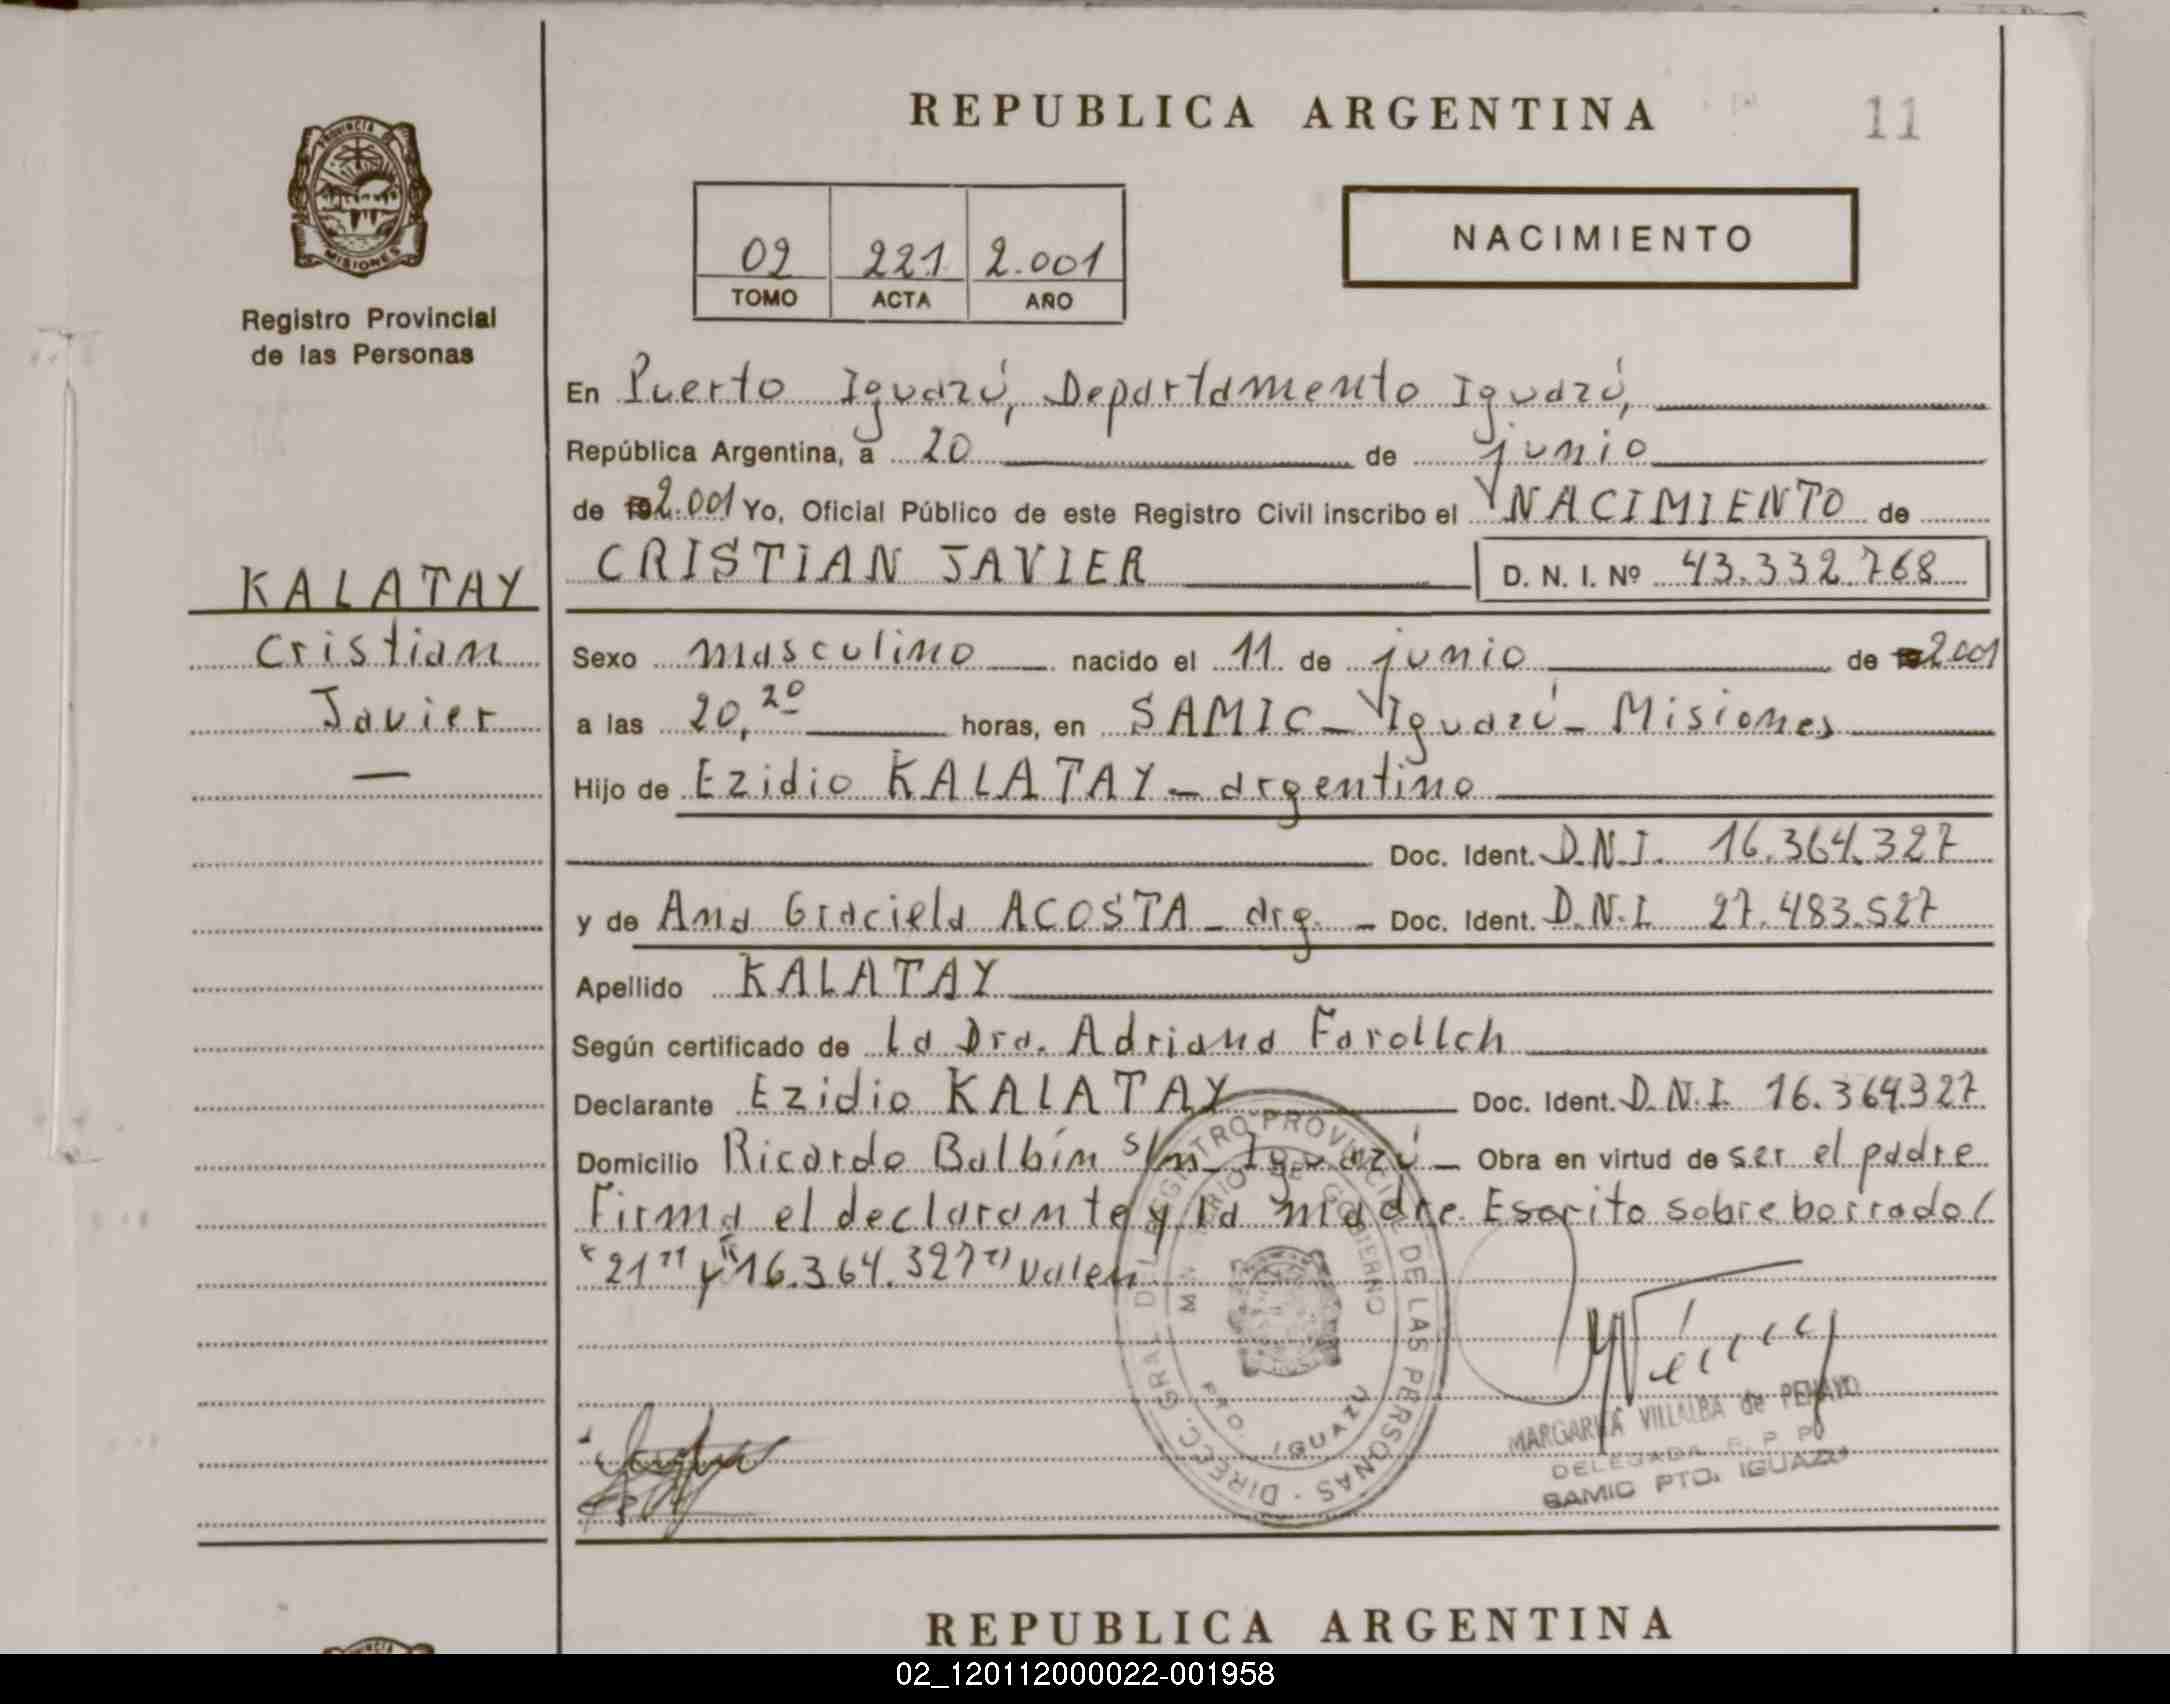 REPUBLICA ARGENTINA
11
PROVINCIA DE
MISIONES
Registro Provincial
de las Personas
02 221 2.001
TOMO ACTA AÑO
NACIMIENTO
En Puerto Iguazú, Departamento Iguazú,
República Argentina, a 20 de junio
de 2.001 Yo, Oficial Público de este Registro Civil inscribo el NACIMIENTO de
CRISTIAN JAVIER D. N. I. Nº 43.332.768
KALATAY
Cristian
Javier
Sexo masculino nacido el 11 de junio de 2001
a las 20,20 horas, en SAMIC - Iguazú - Misiones
Hijo de Ezidio KALATAY - argentino
Doc. Ident. D.N.I. 16.364.327
y de Ana Graciela ACOSTA - arg. - Doc. Ident. D.N.I. 27.483.527
Apellido KALATAY
Según certificado de La Dra. Adriana Farollch
Declarante Ezidio KALATAY Doc. Ident. D.N.I. 16.364.327
Domicilio Ricardo Balbín s/n - Iguazú - Obra en virtud de ser el padre
Firma el declarante y la madre. Escrito sobre borrado/
"21" y "16.364.327" valen
DIRECC. GRAL. DEL REGISTRO PROVINCIAL DE LAS PERSONAS
MINISTERIO DE GOBIERNO
PTO. IGUAZU
MARGARITA VILLALBA de PENAYO
DELEGADA R. P. P.
SAMIC PTO. IGUAZU
REPUBLICA ARGENTINA
02_120112000022-001958